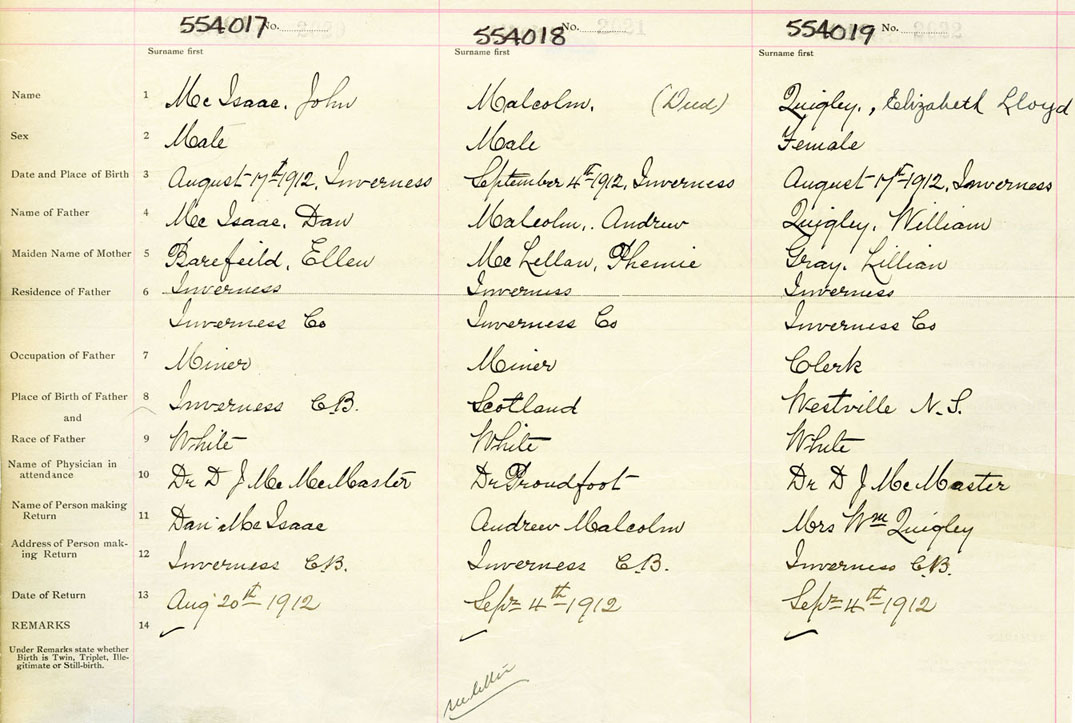 554017 No. 554018 No. 554019 No.
Surname first Surname first Surname first
Name 1 Mc Isaac, John Malcolm, (Died) Quigley, Elizabeth Lloyd
Sex 2 Male Male Female
Date and Place of Birth 3 August 17th 1912, Inverness September 4th 1912, Inverness August 17th 1912, Inverness
Name of Father 4 Mc Isaac, Dan Malcolm, Andrew Quigley, William
Maiden Name of Mother 5 Barefeild, Ellen Mc Lellan, Phemie Gray, Lillian
Residence of Father 6 Inverness Inverness Inverness
Inverness Co Inverness Co Inverness Co
Occupation of Father 7 Miner Miner Clerk
Place of Birth of Father 8 Inverness C.B. Scotland Westville N.S.
and
Race of Father 9 White White White
Name of Physician in
attendance 10 Dr D J Mc McMaster Dr Proudfoot Dr D J McMaster
Name of Person making
Return 11 Dan McIsaac Andrew Malcolm Mrs Wm Quigley
Address of Person mak-
ing Return 12 Inverness C.B. Inverness C.B. Inverness C.B.
Date of Return 13 Aug 20th 1912 Sept 4th 1912 Sept 4th 1912
REMARKS 14
Under Remarks state whether
Birth is Twin, Triplet, Ille-
gitimate or Still-birth.